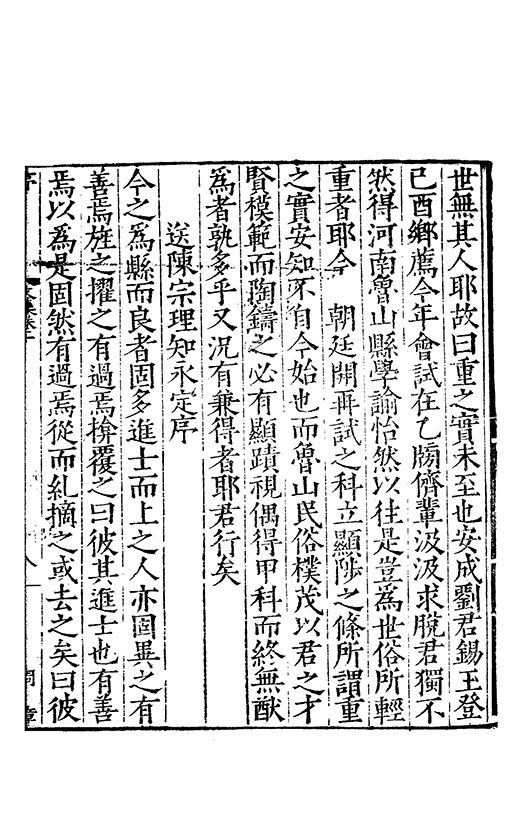 世無其人耶故曰重之實未至也安成劉君錫玉登
己酉鄉薦今年會試在乙牓儕輩汲汲求脫君獨不
然得河南魯山縣學諭怡然以往是豈為世俗所輕
重者耶今　朝廷開再試之科立顯陟之條所謂重
之實安知不自今始也而魯山民俗樸茂以君之才
賢模範而陶鑄之必有顯蹟視偶得甲科而終無猷
為者孰多乎又況有兼得者耶君行矣
送陳宗理知永定序
今之為縣而良者固多進士而上之人亦固異之有
善焉旌之擢之有過焉揜覆之曰彼其進士也有善
焉以為是固然有過焉從而糺摘之或去之矣曰彼
八